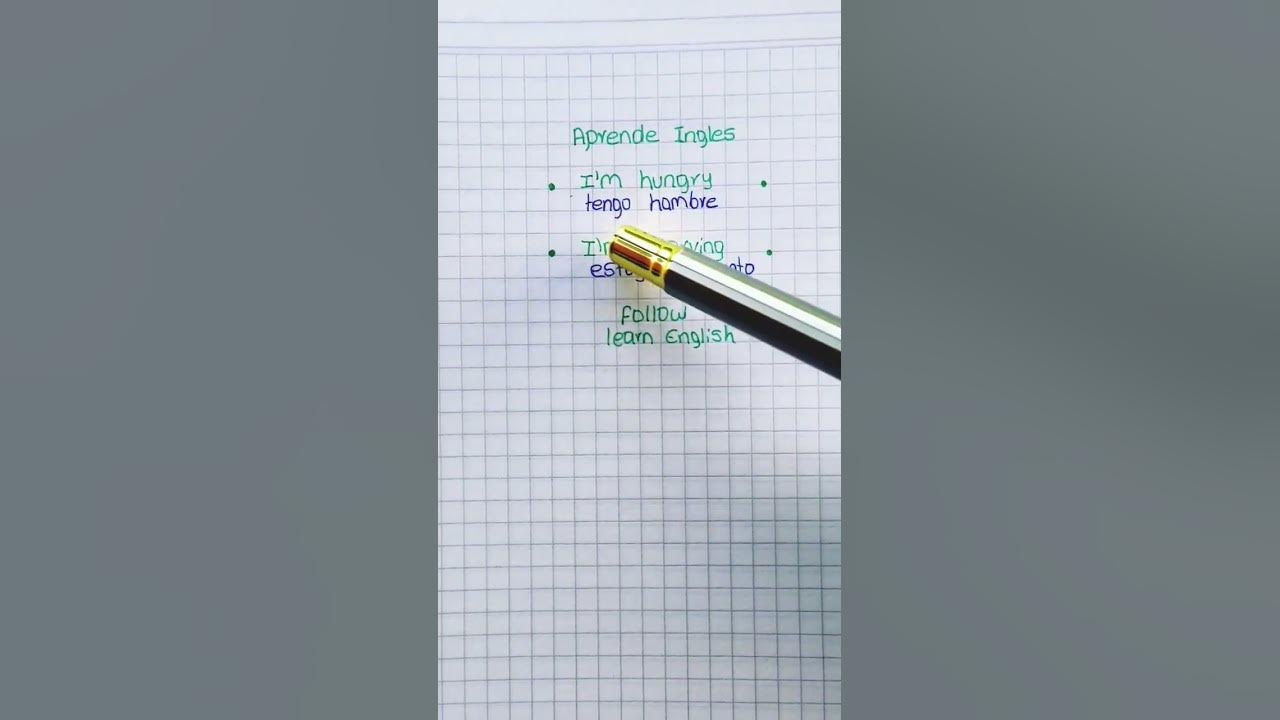 Aprende Ingles
I'm hungry
tengo hambre
follow
learn English